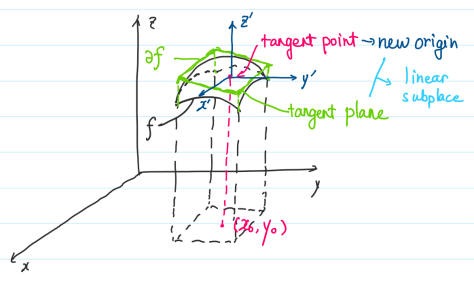 z
z'
∂f
tangent point → new origin
y'
linear
subplace
x'
f
tangent plane
y
(x₀, y₀)
x